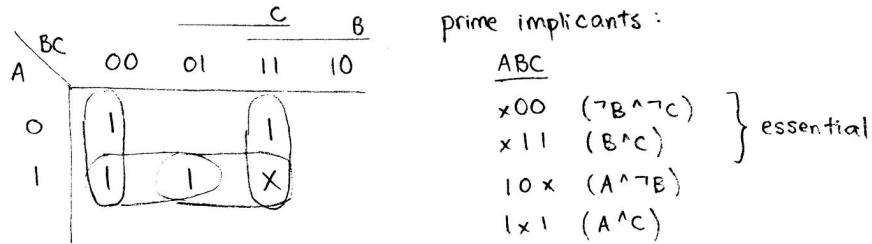 C
B
BC
A
00 01 11 10
0 1 1
1 1 1 x
prime implicants :
ABC
x00 (¬B^¬C)
x11 (B^C)
} essential
10x (A^¬B)
1x1 (A^C)